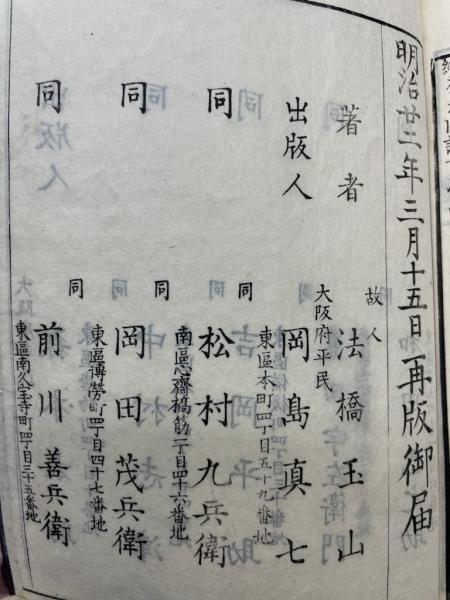 明治廿二年三月十五日再版御届
著者 故人 法橋玉山
出版人 大阪府平民 岡島真七
東區本町四丁目五十九番地
同 同 松村九兵衛
南區心齋橋筋一丁目四十六番地
同 同 岡田茂兵衛
東區博勞町四丁目四十七番地
同 同 前川善兵衛
東區南久宝寺町四丁目三十五番地